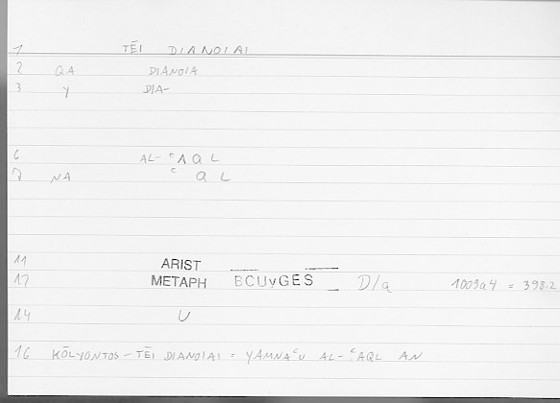 1 TĒI DIANOIAI
2 QA DIANOIA
3 Y DIA-
6 AL- ʿAQL
7 NA ʿ QL
11 ARIST
12 METAPH BCUvGES D/a 1009a4 = 398.2
14 U
16 KŌLYONTOS - TĒI DIANOIAI = YAMNAʿU AL-ʿAQL AN